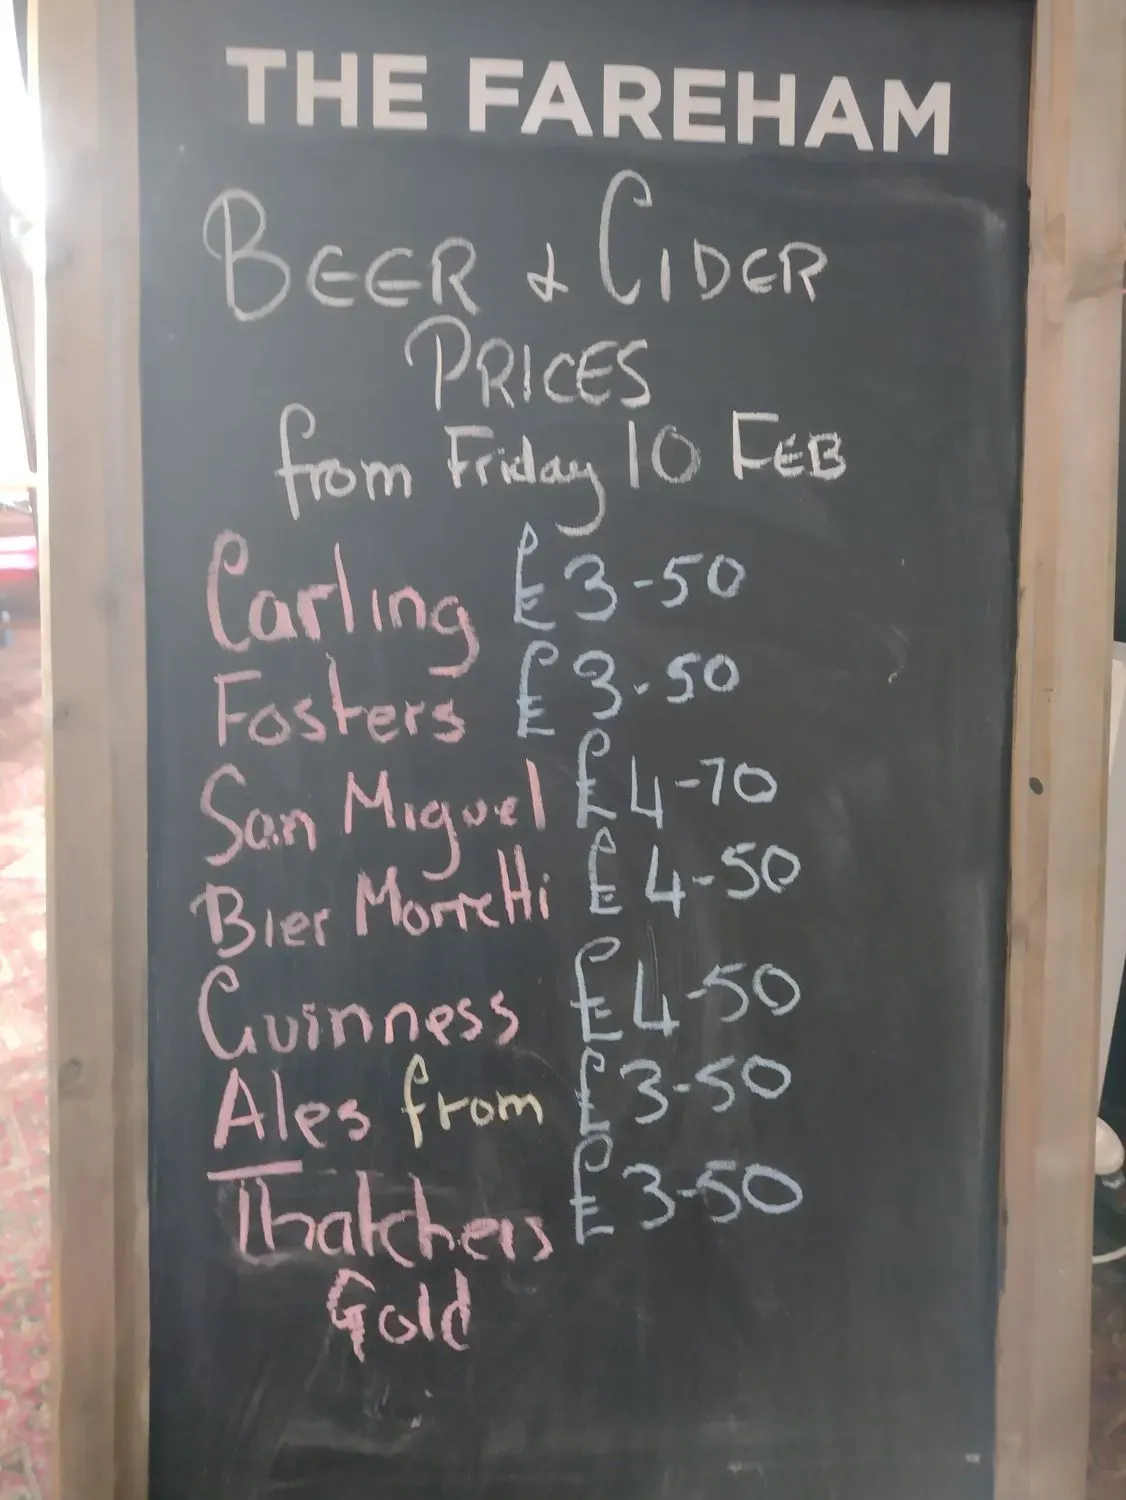 THE FAREHAM
BEER & CIDER
PRICES
from Friday 10 FEB
Carling £3-50
Fosters £3-50
San Miguel £4-70
Bier Morretti £4-50
Guinness £4-50
Ales from £3-50
Thatchers £3-50
Gold